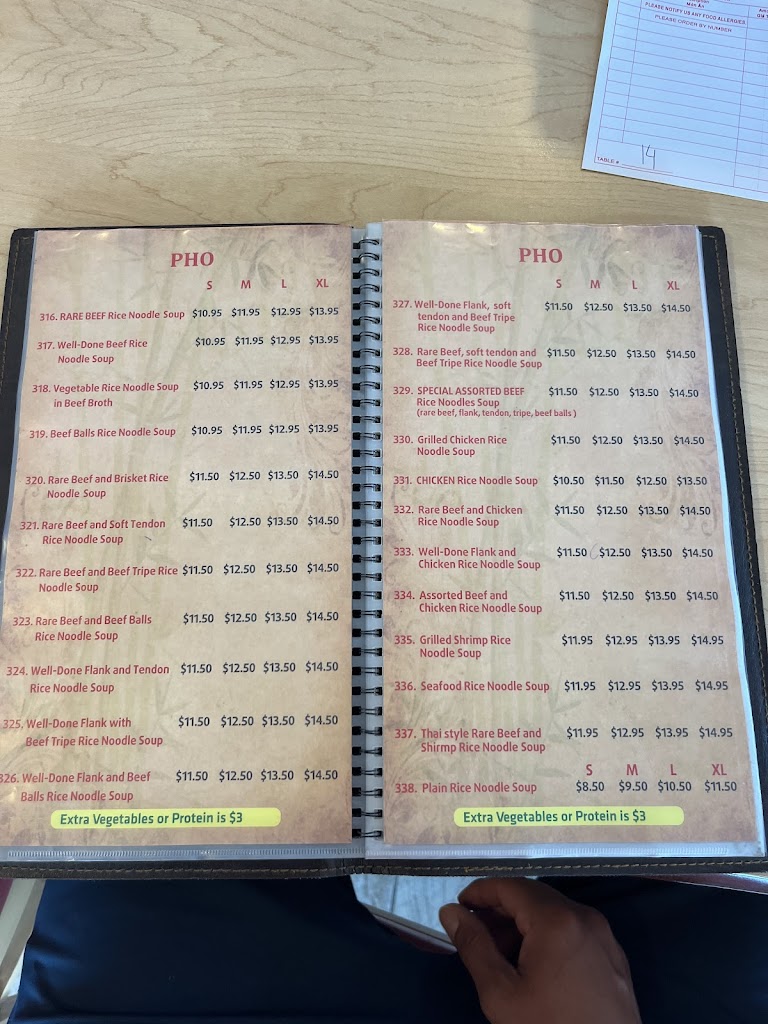 Mon An
PLEASE NOTIFY US ANY FOOD ALLERGIES
PLEASE ORDER BY NUMBER
TABLE # 14
PHO
S M L XL
316. RARE BEEF Rice Noodle Soup $10.95 $11.95 $12.95 $13.95
317. Well-Done Beef Rice $10.95 $11.95 $12.95 $13.95
Noodle Soup
318. Vegetable Rice Noodle Soup $10.95 $11.95 $12.95 $13.95
in Beef Broth
319. Beef Balls Rice Noodle Soup $10.95 $11.95 $12.95 $13.95
320. Rare Beef and Brisket Rice $11.50 $12.50 $13.50 $14.50
Noodle Soup
321. Rare Beef and Soft Tendon $11.50 $12.50 $13.50 $14.50
Rice Noodle Soup
322. Rare Beef and Beef Tripe Rice $11.50 $12.50 $13.50 $14.50
Noodle Soup
323. Rare Beef and Beef Balls $11.50 $12.50 $13.50 $14.50
Rice Noodle Soup
324. Well-Done Flank and Tendon $11.50 $12.50 $13.50 $14.50
Rice Noodle Soup
325. Well-Done Flank with $11.50 $12.50 $13.50 $14.50
Beef Tripe Rice Noodle Soup
326. Well-Done Flank and Beef $11.50 $12.50 $13.50 $14.50
Balls Rice Noodle Soup
Extra Vegetables or Protein is $3
PHO
S M L XL
327. Well-Done Flank, soft $11.50 $12.50 $13.50 $14.50
tendon and Beef Tripe
Rice Noodle Soup
328. Rare Beef, soft tendon and $11.50 $12.50 $13.50 $14.50
Beef Tripe Rice Noodle Soup
329. SPECIAL ASSORTED BEEF $11.50 $12.50 $13.50 $14.50
Rice Noodles Soup
(rare beef, flank, tendon, tripe, beef balls )
330. Grilled Chicken Rice $11.50 $12.50 $13.50 $14.50
Noodle Soup
331. CHICKEN Rice Noodle Soup $10.50 $11.50 $12.50 $13.50
332. Rare Beef and Chicken $11.50 $12.50 $13.50 $14.50
Rice Noodle Soup
333. Well-Done Flank and $11.50 $12.50 $13.50 $14.50
Chicken Rice Noodle Soup
334. Assorted Beef and $11.50 $12.50 $13.50 $14.50
Chicken Rice Noodle Soup
335. Grilled Shrimp Rice $11.95 $12.95 $13.95 $14.95
Noodle Soup
336. Seafood Rice Noodle Soup $11.95 $12.95 $13.95 $14.95
337. Thai style Rare Beef and $11.95 $12.95 $13.95 $14.95
Shirmp Rice Noodle Soup
S M L XL
338. Plain Rice Noodle Soup $8.50 $9.50 $10.50 $11.50
Extra Vegetables or Protein is $3